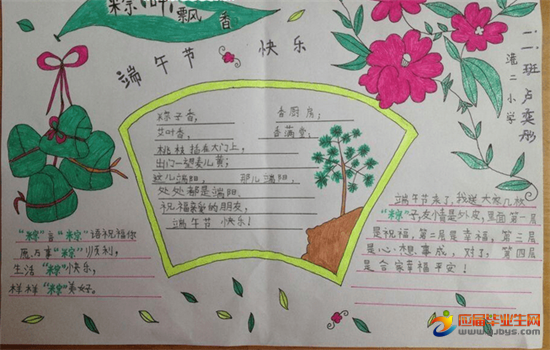 粽叶飘香
端午节 快乐
二.一班 卢奕彤
淮二小学
粽子香, 香厨房;
艾叶香, 香满堂;
桃枝插在大门上,
出门一望麦儿黄;
这儿端阳, 那儿端阳,
处处都是端阳.
祝福亲爱的朋友,
端午节快乐!
"粽"言"粽"语祝福你
愿万事"粽"顺利,
生活"粽"快乐,
样样"粽"美好。
端午节来了,我送大家几枚
"粽"子,友情是外皮,里面第一层
是祝福,第二层是幸福,第三层
是心想事成,对了,第四层
是合家幸福平安!
应届毕业生网
www.yjbys.com